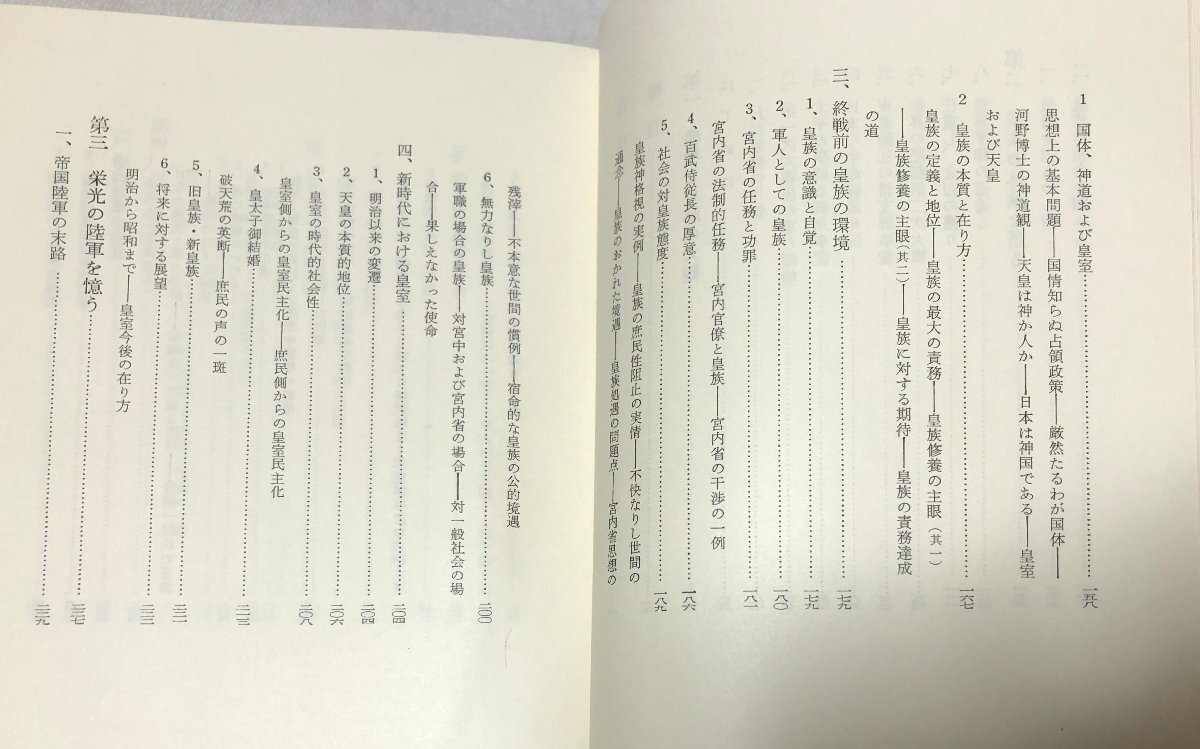 1 国体、神道および皇室……一五八
思想上の基本問題――国情知らぬ占領政策――厳然たるわが国体――
河野博士の神道観――天皇は神か人か――日本は神国である――皇室
および天皇
2 皇族の本質と在り方……一六七
皇族の定義と地位――皇族の最大の責務――皇族修養の主眼(其一)
――皇族修養の主眼(其二)――皇族に対する期待――皇族の責務達成
の道
三、終戦前の皇族の環境……一七九
1、皇族の意識と自覚……一七九
2、軍人としての皇族……一八〇
3、宮内省の任務と功罪……一八一
宮内省の法制的任務――宮内官僚と皇族――宮内省の干渉の一例
4、百武侍従長の厚意……一八六
5、社会の対皇族態度……一八九
皇族神格視の実例――皇族の庶民性阻止の実情――不快なりし世間の
通念――皇族のおかれた境遇――皇族処遇の問題点――宮内省思想の
残滓――不本意な世間の慣例――宿命的な皇族の公的境遇
6、無力なりし皇族……二〇〇
軍職の場合の皇族――対宮中および宮内省の場合――対一般社会の場
合――果しえなかった使命
四、新時代における皇室……二〇四
1、明治以来の変遷……二〇四
2、天皇の本質的地位……二〇六
3、皇室の時代的社会性……二〇八
皇室側からの皇室民主化――庶民側からの皇室民主化
4、皇太子御結婚……二一三
破天荒の英断――庶民の声の一斑
5、旧皇族・新皇族……二二一
6、将来に対する展望……二二三
明治から昭和まで――皇室今後の在り方
第三 栄光の陸軍を憶う……二二七
一、帝国陸軍の末路……二二九